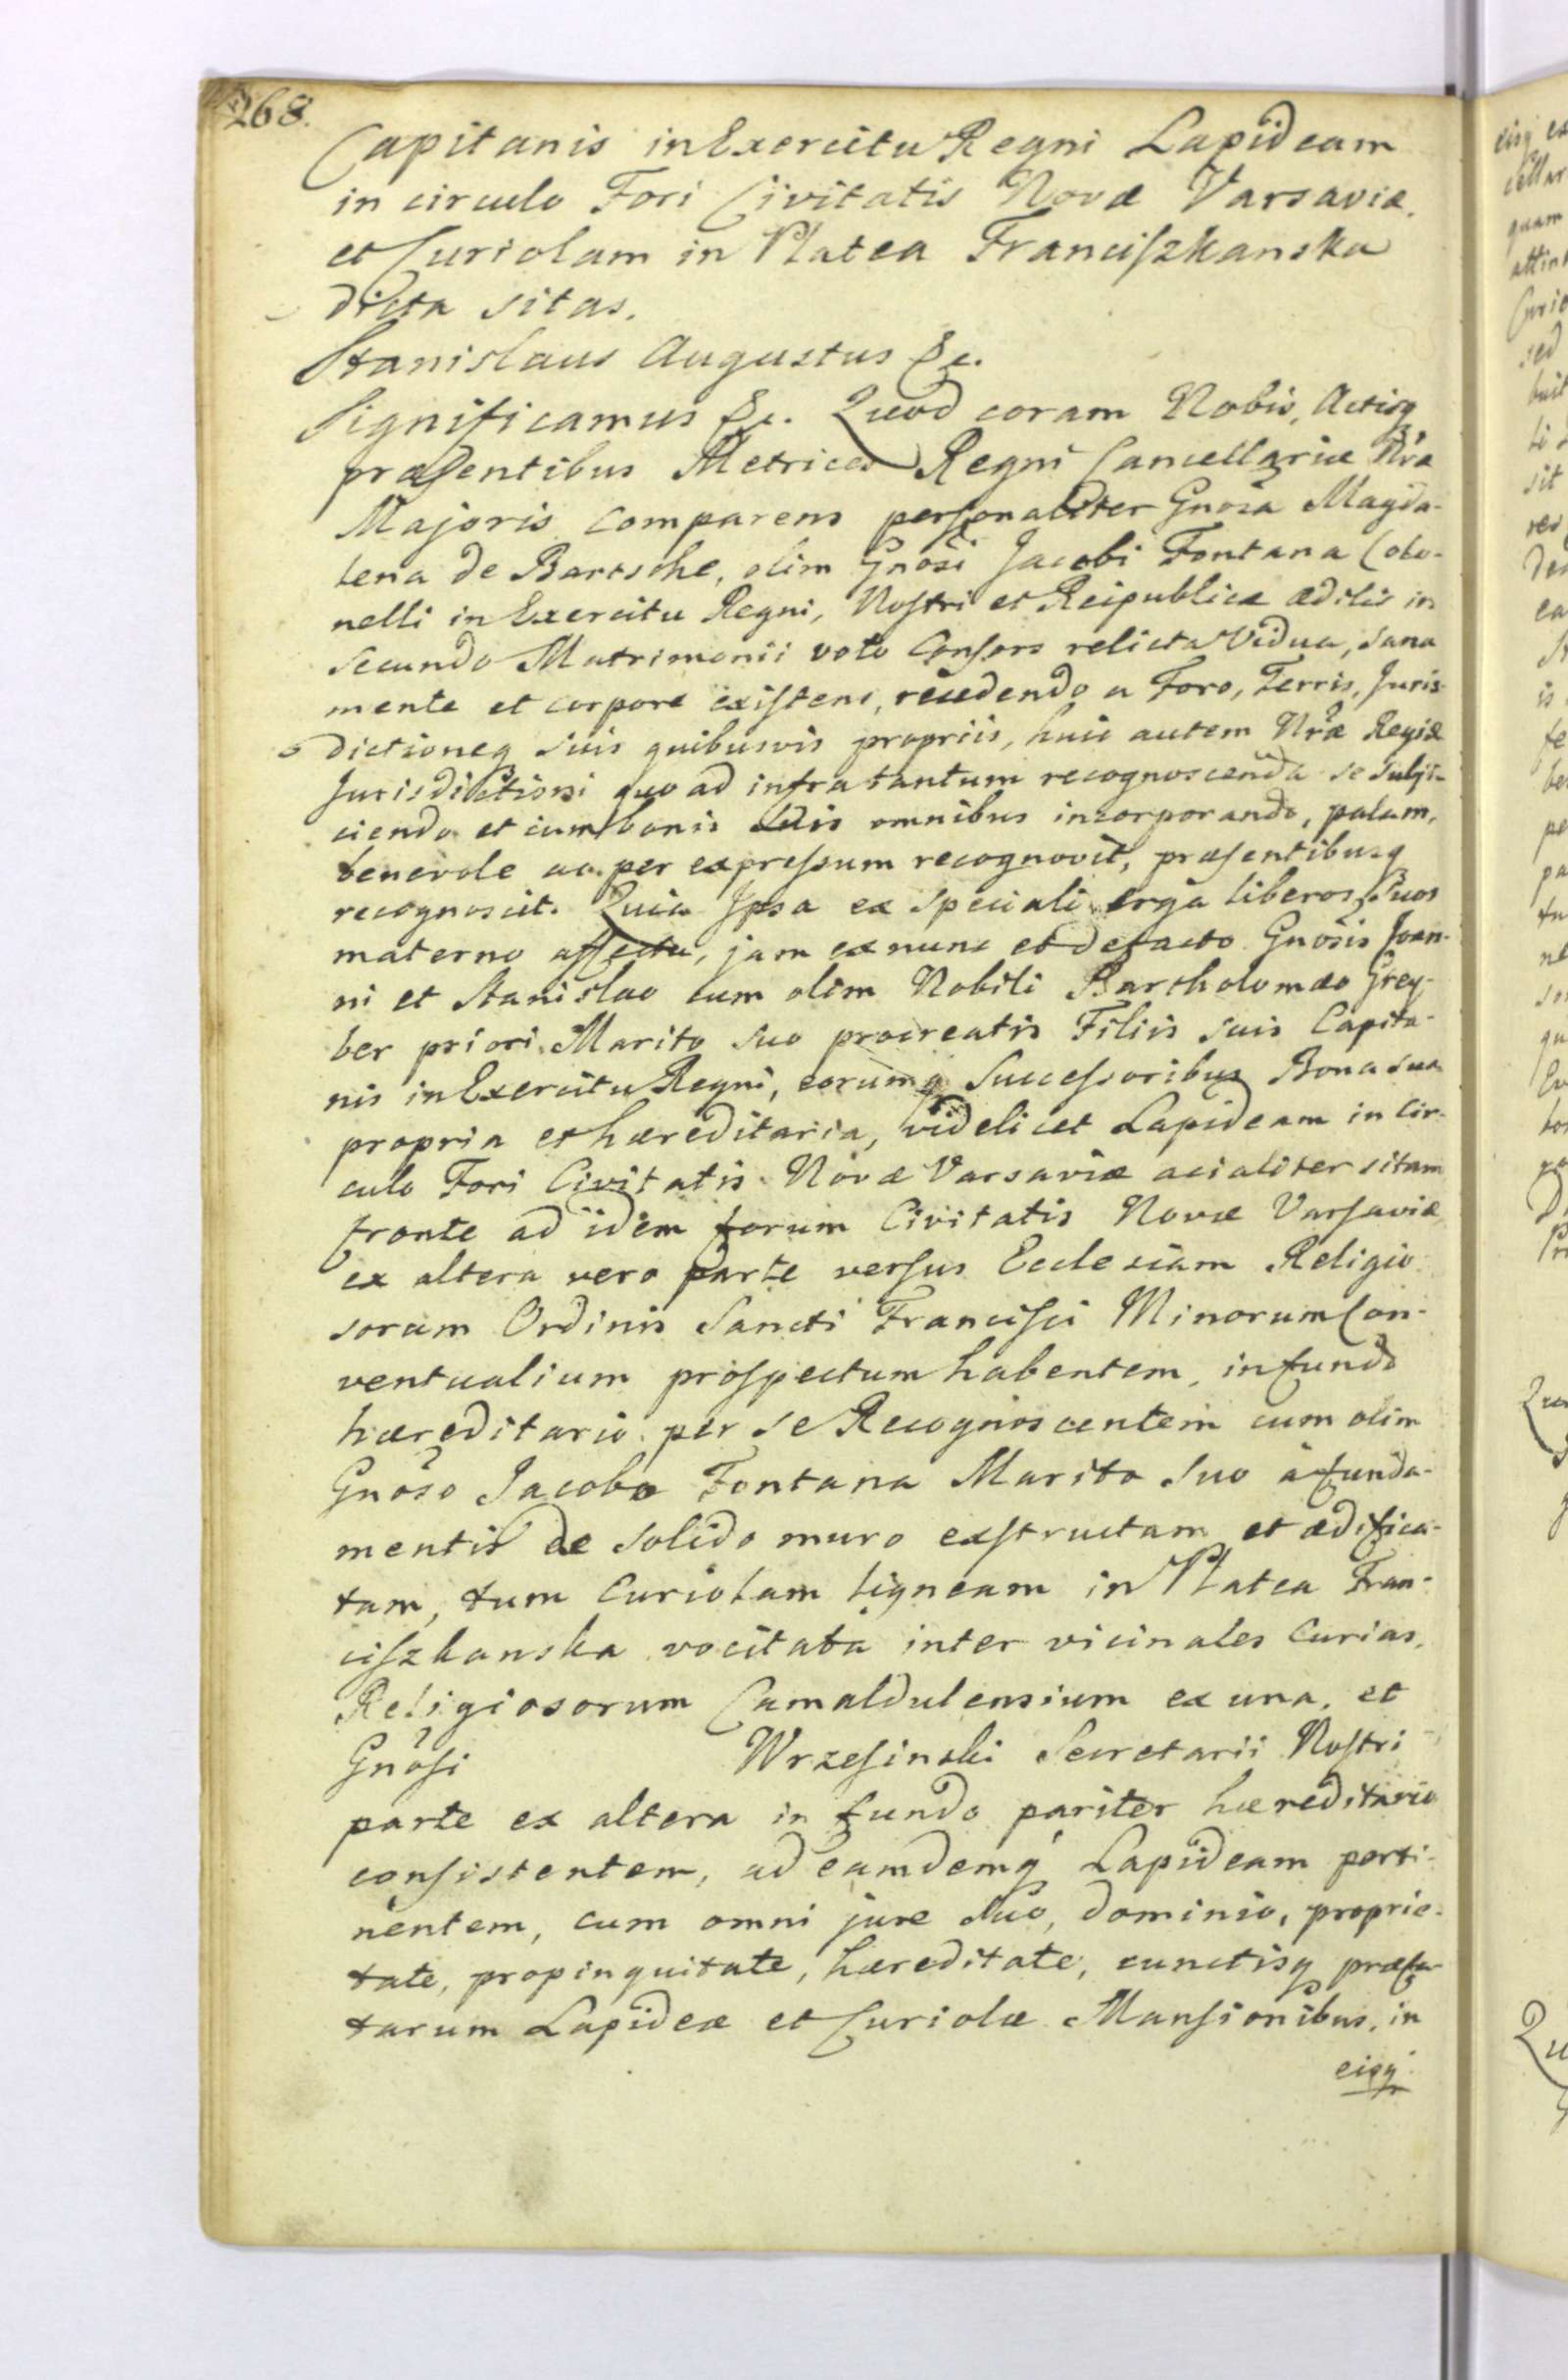 268.
Capitanis in Exercitu Regni Lapideam
in circulo Fori Civitatis Novæ Varsaviæ
et Curiolam in Platea Franciſzkanska
dicta sitas.
Stanislaus Augustus &c.
Significamus &c. Quod coram Nobis, Actisq
præſentibus Metrices Regni Cancellariæ Nrã
Majoris comparens perſonaliter Gnosa Magda-
lena de Bartsche, olim Gnosi Jacobi Fontana Colo-
nelli in Exercitu Regni, Noſtri et Reipublicæ ædilis in
secundo Matrimonii voto Conſors relicta Vidua, sana
mente et corpore exiſtens, recedendo a Foro, Terris, Juris-
dictioneq suis quibusvis propriis, huic autem Nræ Regiæ
Jurisdictioni quo ad infra tantum recognoscenda se subji-
ciendo et cum bonis suis omnibus incorporando, palam,
benevole ac per expreſsum recognovit, præſentibusq
recognoscit. Quia Ipsa ex speciali erga liberos suos
materno affectu, jam ex nunc et de facto Gnosis Joan-
ni et Stanislao cum olim Nobili Bartholomæo Grey-
ber priori Marito suo procreatis Filiis suis Capita-
nis in Exercitu Regni, eorumq Succeſsoribus Bona sua
propria et hæreditaria, videlicet Lapideam in Cir-
culo Fori Civitatis Novæ Varsaviæ acialiter sitam
fronte ad idem forum Civitatis Novæ Varſaviæ
ex altera vero parte verſus Ecclesiam Religio-
sorum Ordinis Sancti Franciſci Minorum Con-
ventualium proſpectum habentem, in fundo
hæreditario per se Recognoscentem cum olim
Gnoso Jacobo Fontana Marito suo a funda-
mentis de solido muro exſtructam et ædifica-
tam, tum Curiolam ligneam in Platea Fran-
ciſzkanska vocitata inter vicinales Curias,
Religiosorum Camaldulensium ex una, et
Gnoſi Wrzeſinski Secretarii Noſtri
parte ex altera in fundo pariter hæreditario
conſistentem, ad eamdemq Lapideam perti-
nentem, cum omni jure suo, dominio, proprie-
tate, propinquitate, hæreditate, cunctisq præfa-
tarum Lapideæ et Curiolæ Manſionibus, in
eisq